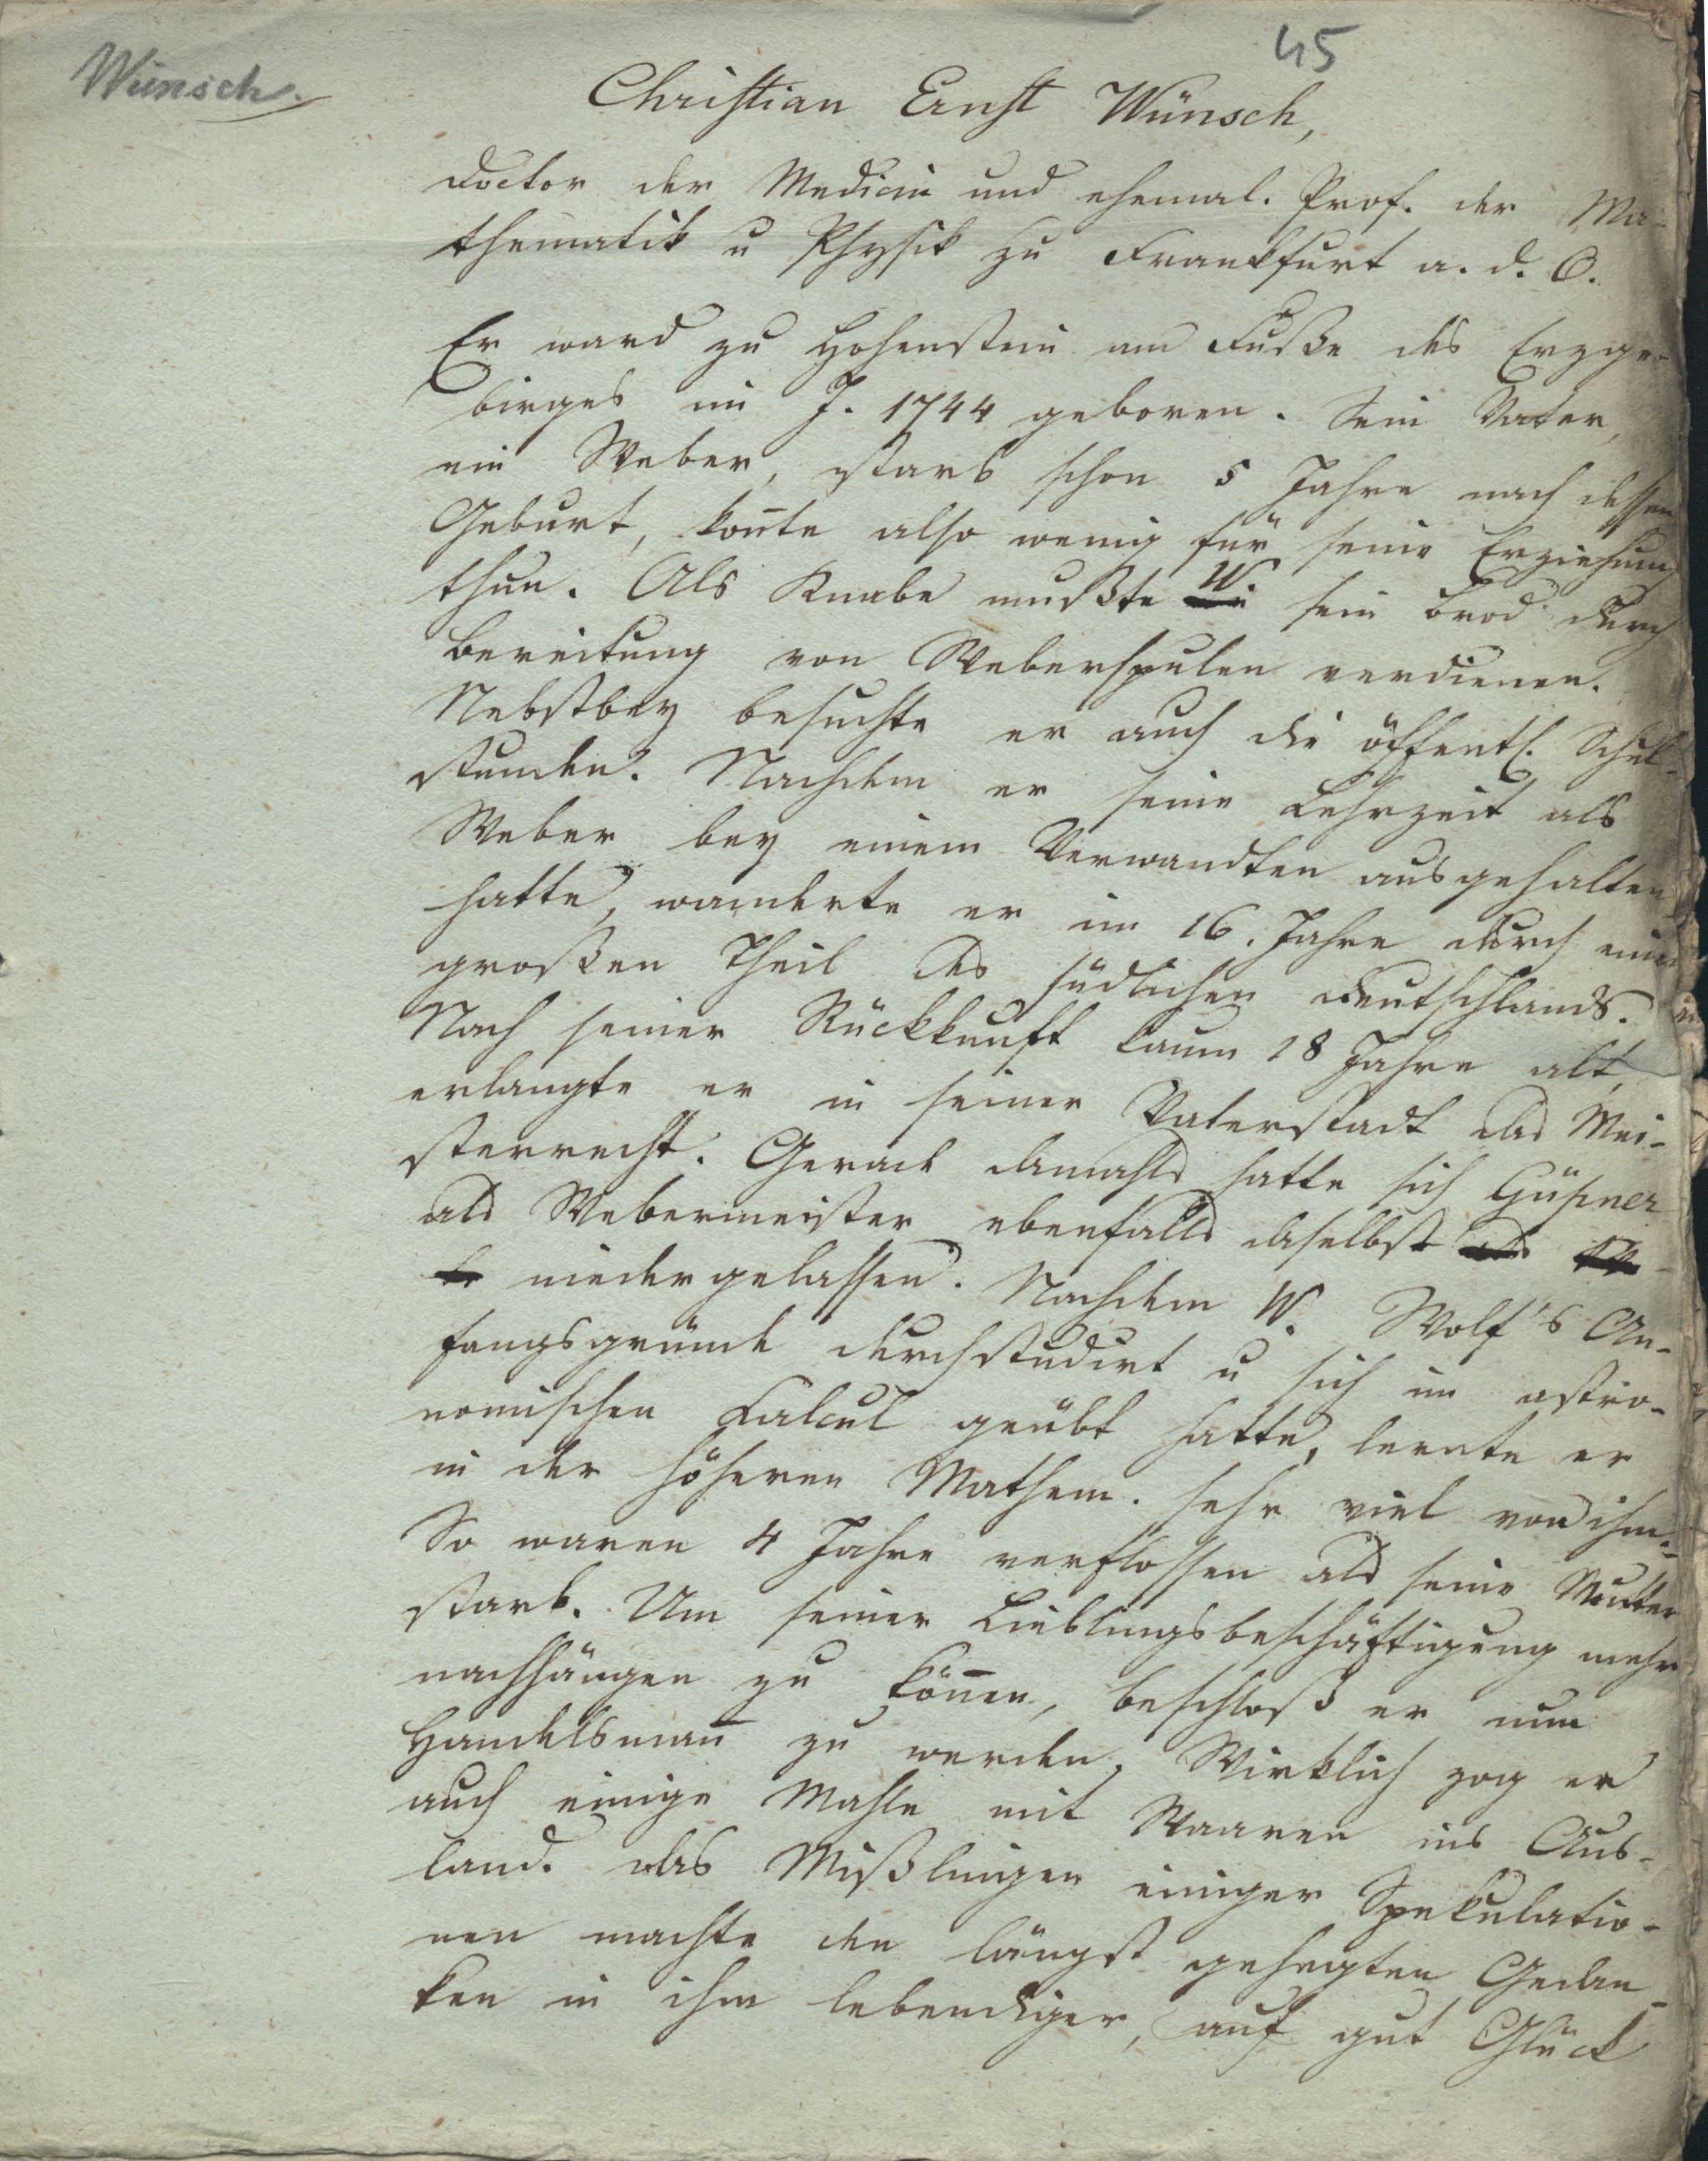 45
Wünsch.
Christian Ernst Wünsch,
Doctor der Medicin und ehemal. Prof. der Ma-
thematik u Physik zu Frankfurt a. d. O.
Er ward zu Hohenstein am Fuße des Erzge-
birges im J. 1744 geboren. Sein Vater,
ein Weber, starb schon 5 Jahre nach dessen
Geburt, kon̄te also wenig für seine Erziehung
thun. Als Knabe mußte W. sein Brod durch
Bereitung von Weberspulen verdienen.
Nebstbey besuchte er auch die öffentl. Schul-
stunden. Nachdem er seine Lehrzeit als
Weber bey einem Verwandten ausgehalten
hatte, wanderte er im 16. Jahre durch einen
großen Theil des südlichen Deutschlands.
Nach seiner Rückkunft kaum 18 Jahre alt,
erlangte er in seiner Vaterstadt das Mei-
sterrecht. Gerade damahls hatte sich Güßner
als Webermeister ebenfalls daselbst
niedergelassen. Nachdem W. Wolf's An-
fangsgründe durchstudirt u sich im astro-
nomischen Calcul geübt hatte, lernte er
in der höheren Mathem. sehr viel von ihm.
So waren 4 Jahre verflossen als seine Mutter
starb. Um seiner Lieblingsbeschäftigung mehr
nachhängen zu kön̄en, beschloß er nun
Handelsman̄ zu werden. Wirklich zog er
auch einige Mahle mit Waaren ins Aus-
land. Das Mißlingen einiger Spekulatio-
nen machte den längst gehegten Gedan-
ken in ihm lebendiger, auf gut Glück